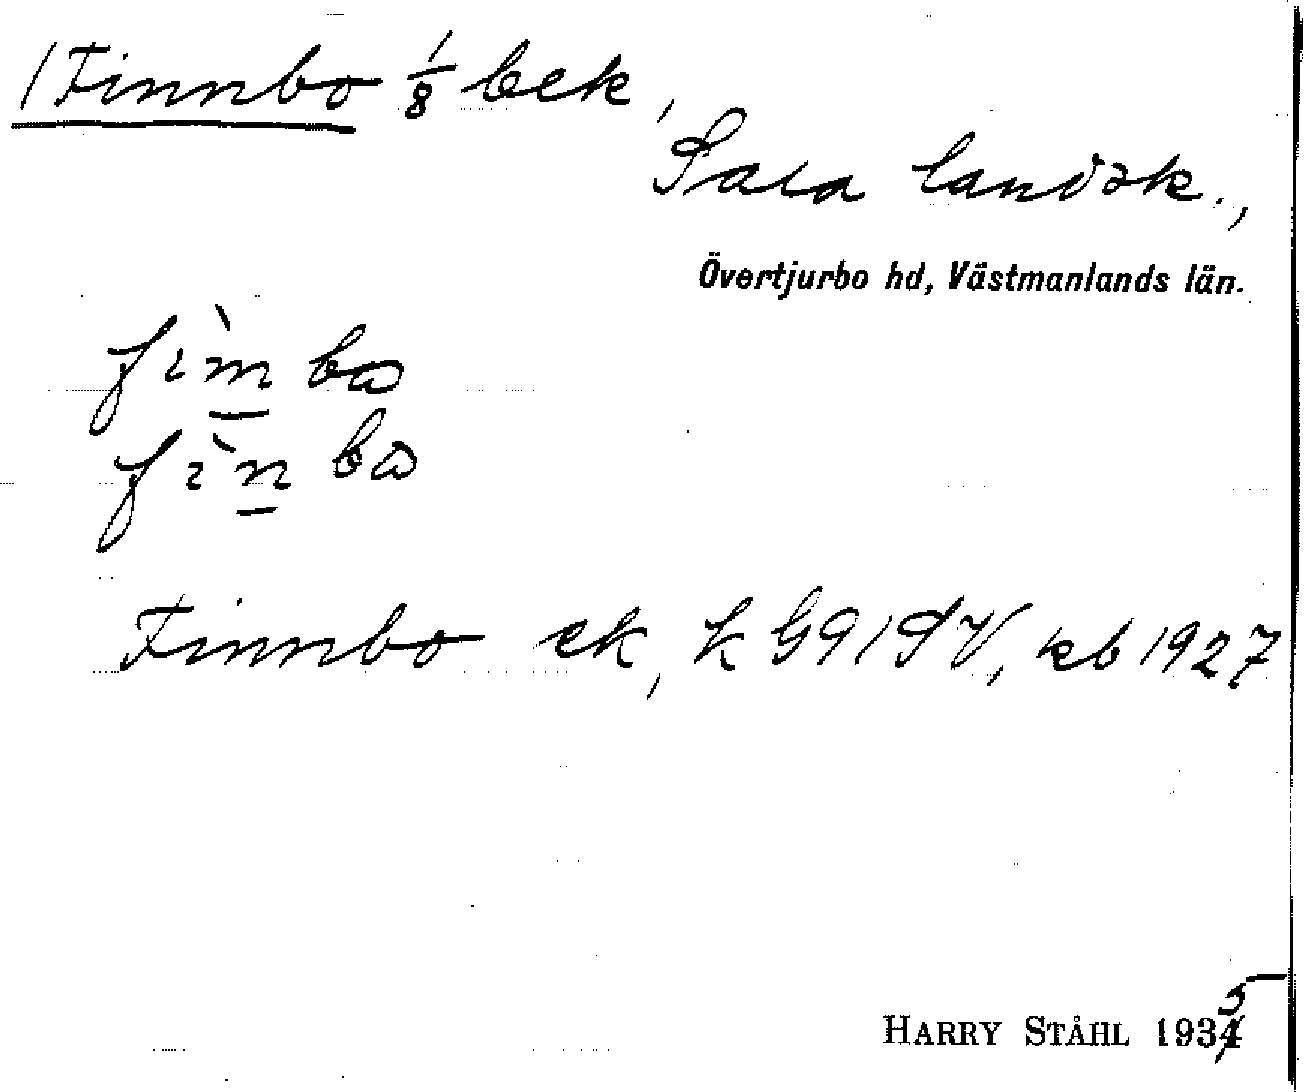 1 Finnbo 1/8 bek,
Sala landsk.,
Övertjurbo hd, Västmanlands län.
fìmbo
fìnbo
Finnbo ek, k G91SV, eb 1927
HARRY STÅHL 1935